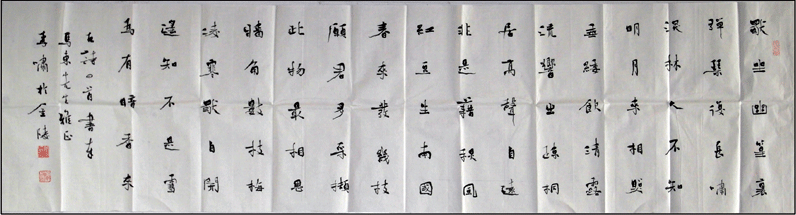 獨坐幽篁裏
彈琴復長嘯
深林人不知
明月來相照
垂緌飲清露
流響出疎桐
居高聲自遠
非是藉秋風
紅豆生南國
春來發幾枝
願君多采擷
此物最相思
墻角數枝梅
凌寒獨自開
遙知不是雪
爲有暗香來
古詩四首書奉
先生雅正
嘯於金陵